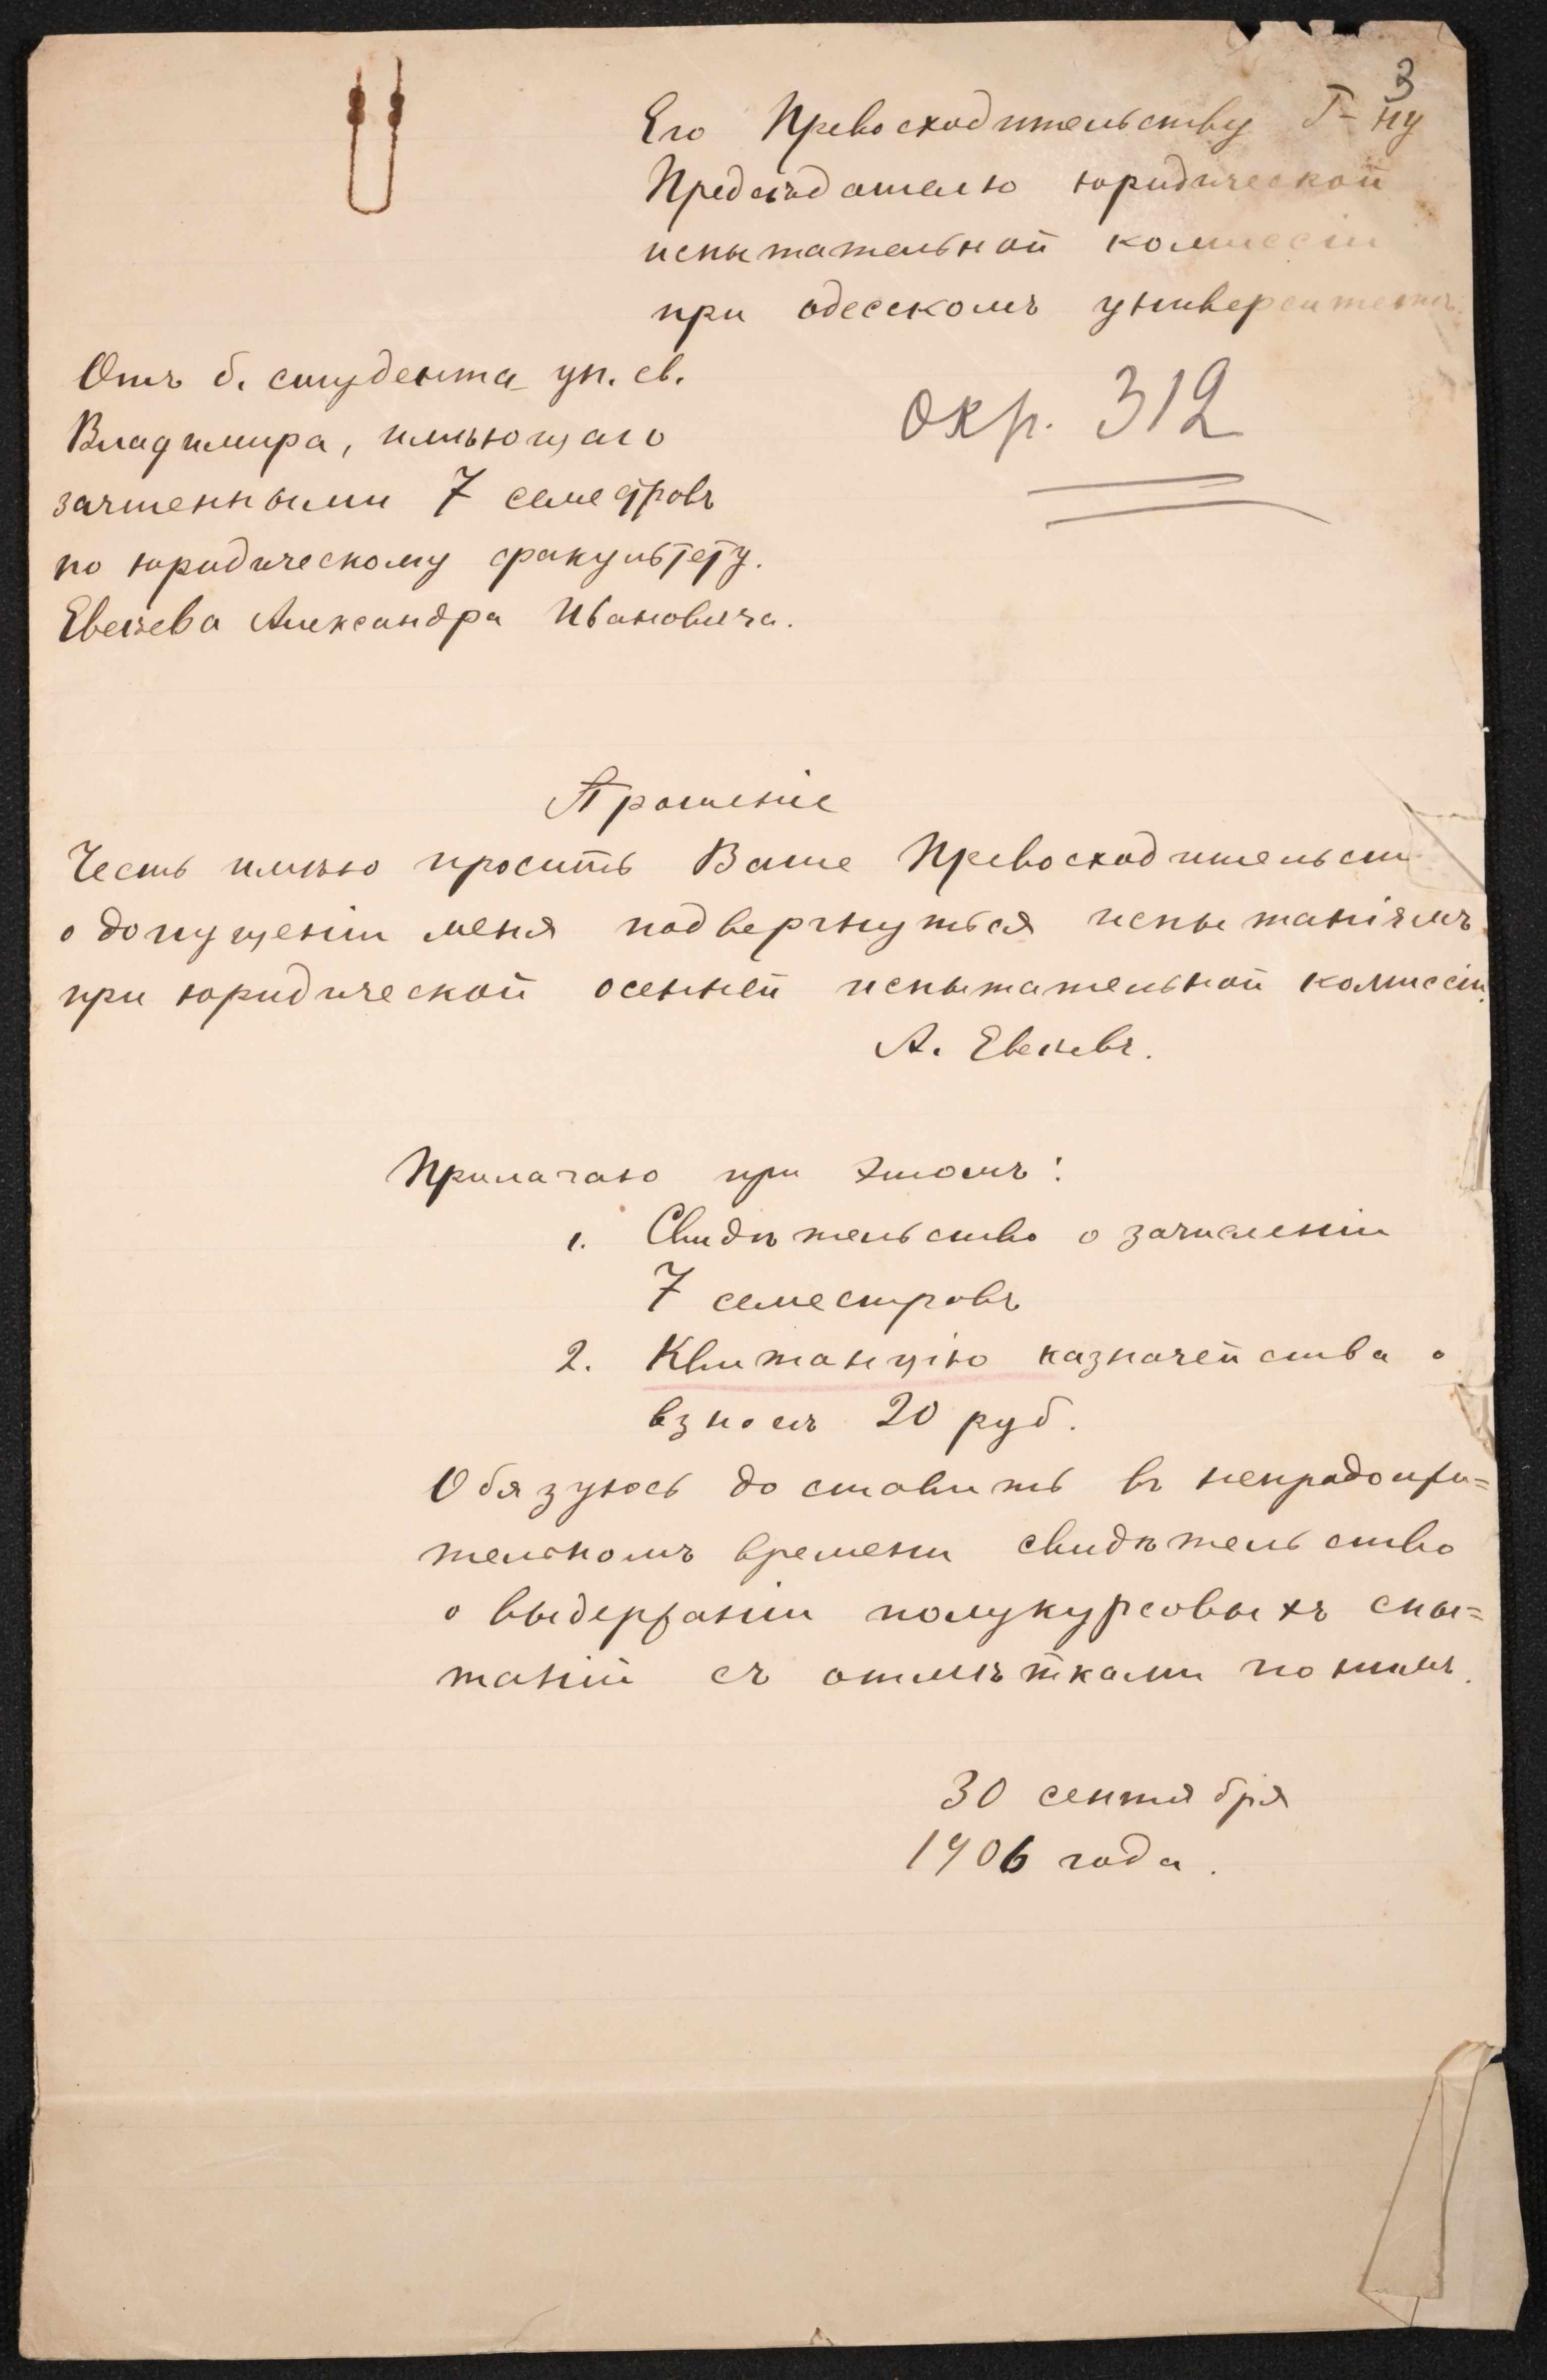 3
Его Превосходительству Г-ну
Предсѣдателю юридической
испытательной комиссіи
при одесскомъ университетѣ.
Отъ б. студента ун. св.
Владимира, имѣющаго
зачтенными 7 семестровъ
по юридическому факультету.
Александра Ивановича.
окр. 312
Прошеніе
Честь имѣю просить Ваше Превосходительст
о допущеніи меня подвергнуться испытаніямъ
при юридической осенней испытательной комиссіи.
А.
Прилагаю при этомъ:
1. Свидѣтельство о зачисленіи
7 семестровъ
2. Квитанцію казначейства о
взносѣ 20 руб.
Обязуюсь доставить въ непродолжи=
тельномъ времени свидѣтельство
о выдержаніи полукурсовыхъ спы=
таній съ отмѣтками по нимъ.
30 сентября
1906 года.